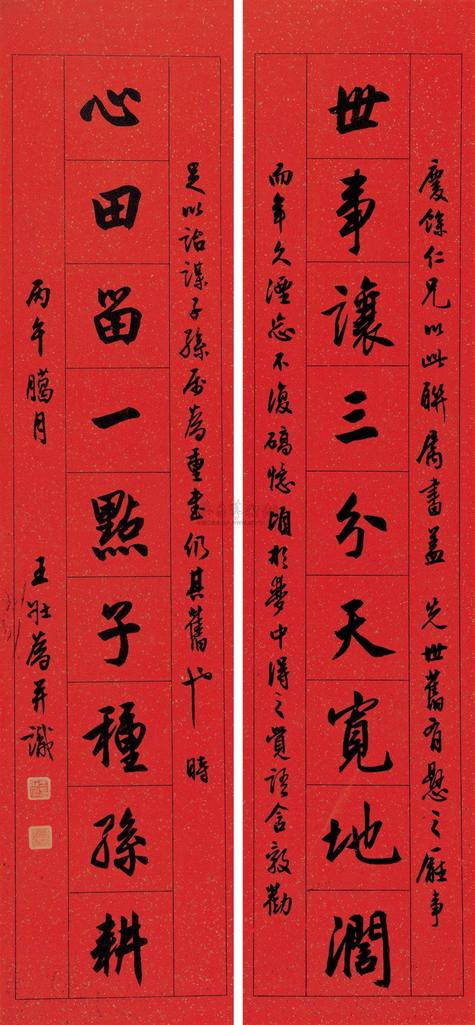 慶餘仁兄以此聯属書蓋 先世舊有懸之廳事
世事讓三分天寬地濶
而年久湮忘不復碻憶頃於夢中得之覺語含敦勸
足以詒謀子孫屬為重書仍其舊也 時
心田留一點子種孫耕
丙午臈月 王壯為并識